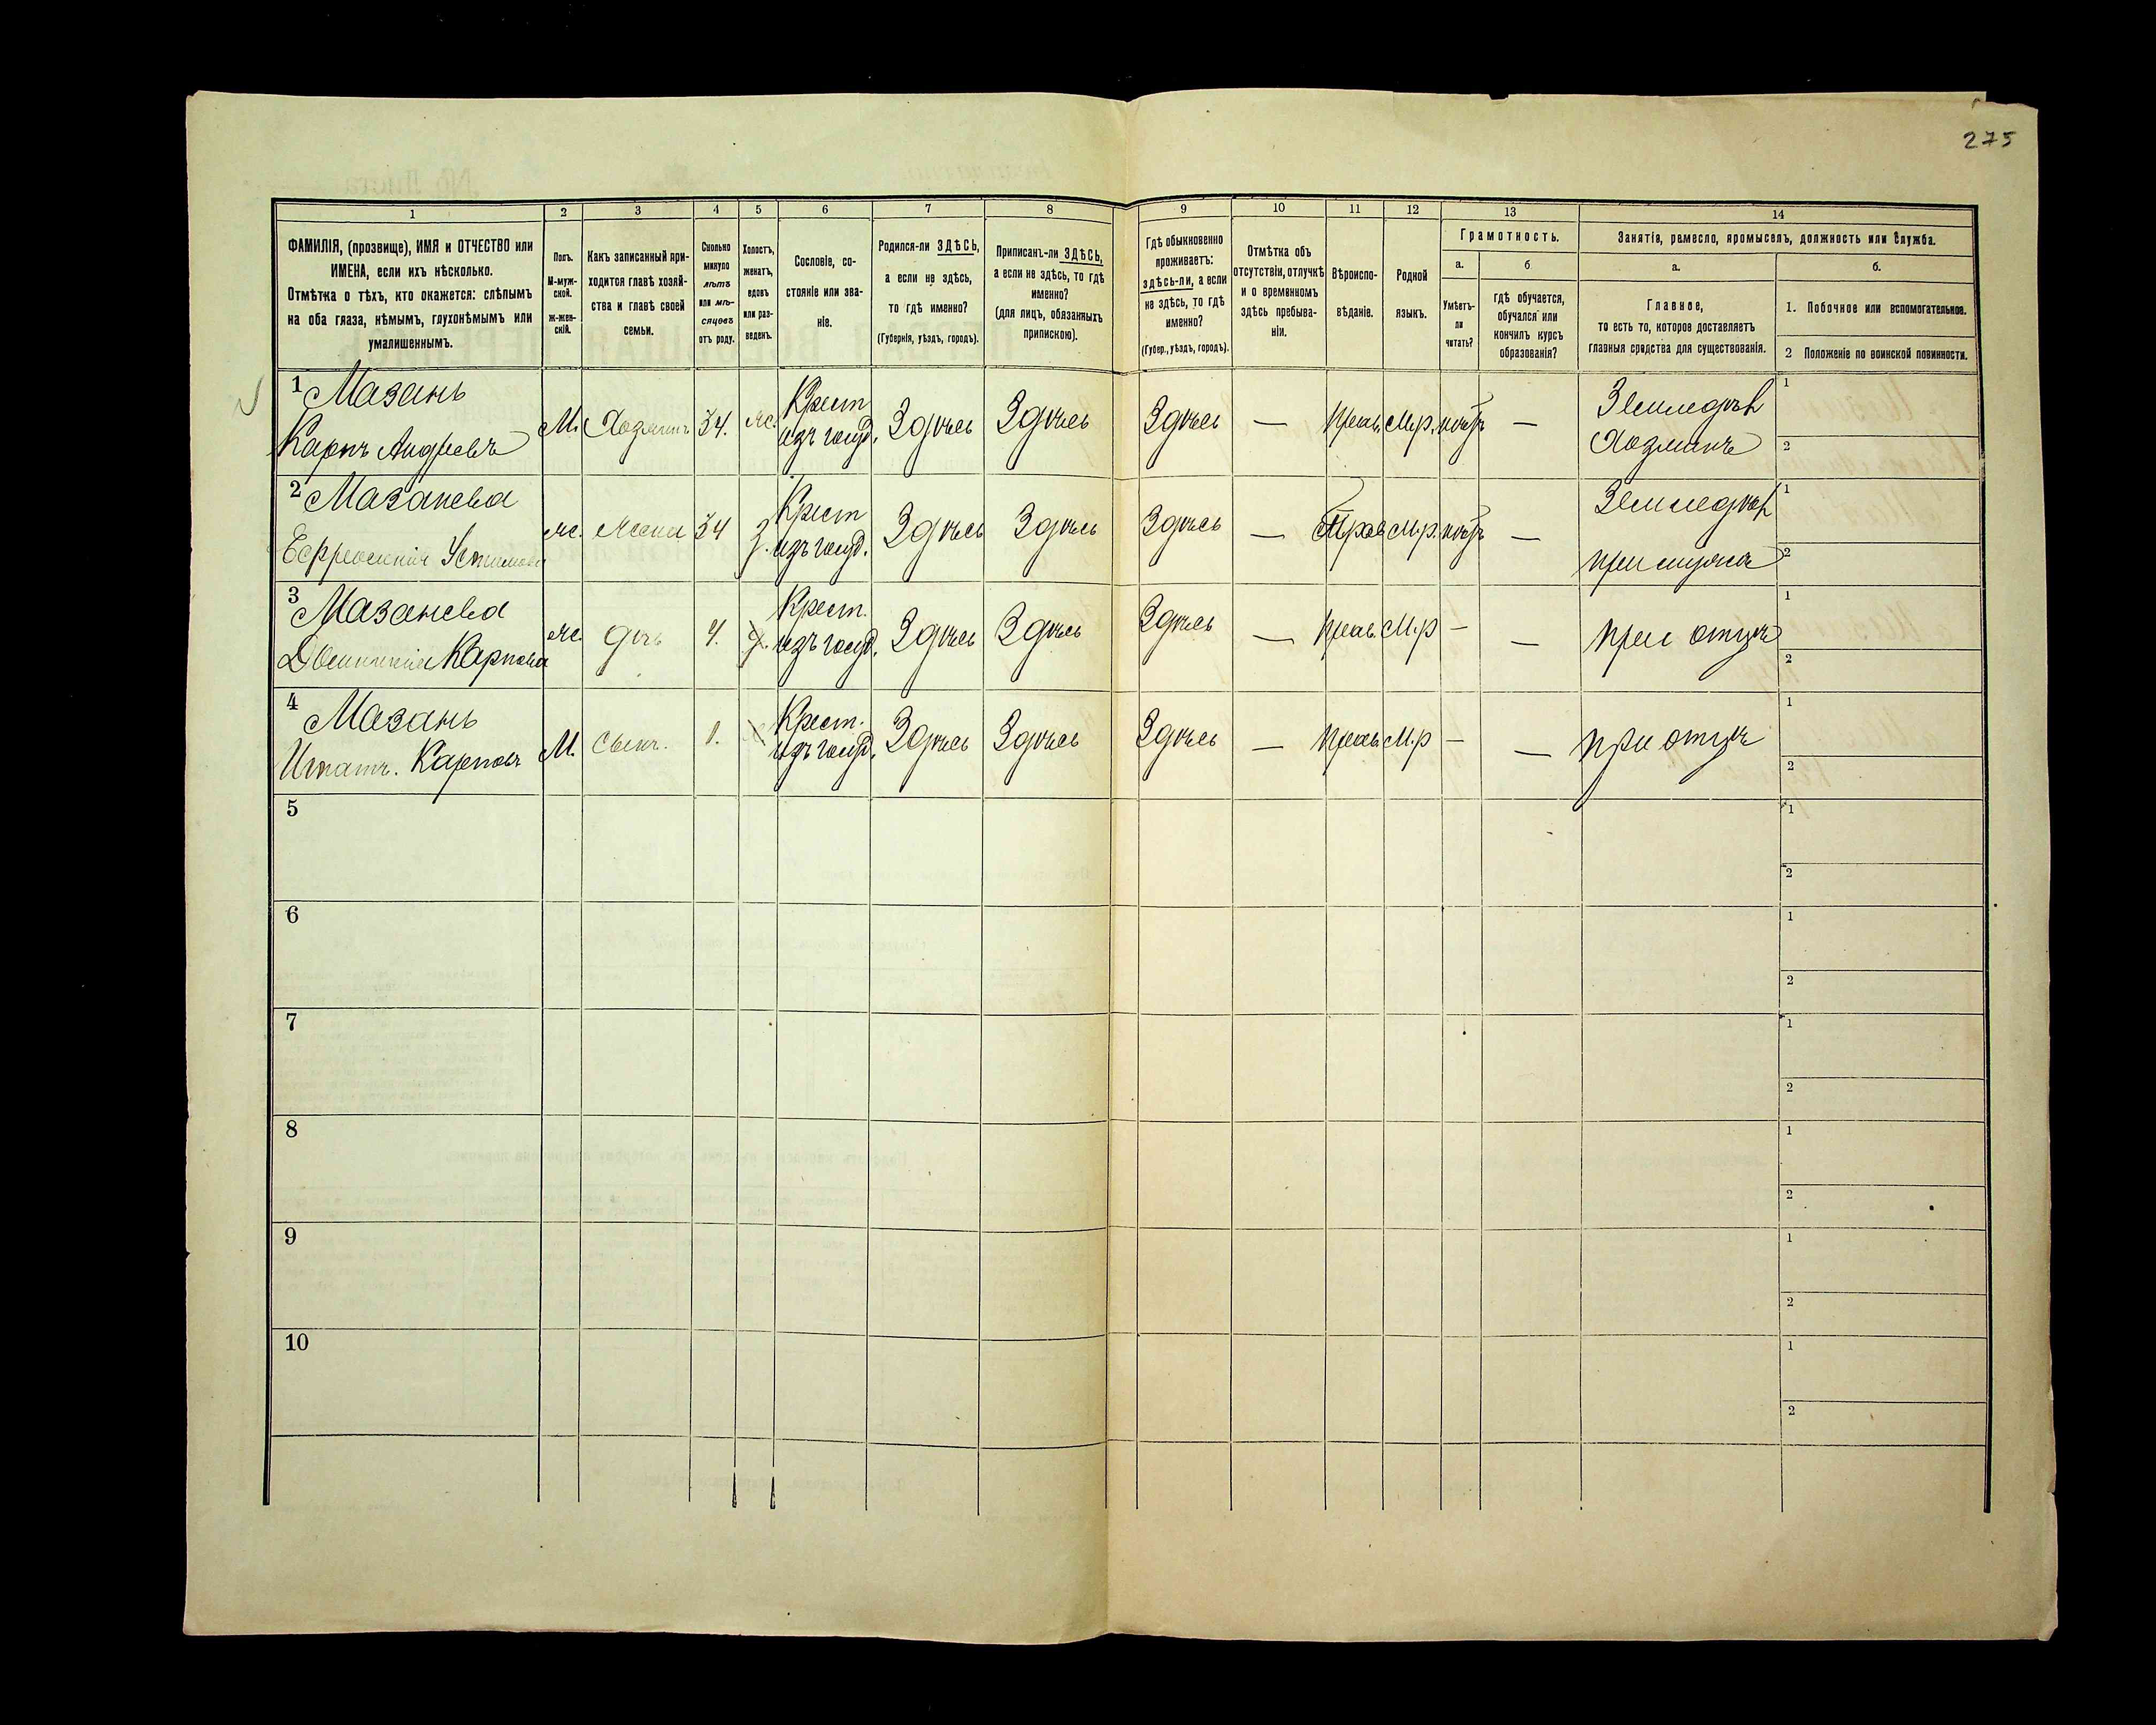 275
1 2 3 4 5 6 7 8 9 10 11 12 13 14
ФАМИЛІЯ, (прозвище), ИМЯ и ОТЧЕСТВО или
ИМЕНА, если ихъ нѣсколько.
Отмѣтка о тѣхъ, кто окажется: слѣпымъ
на оба глаза, нѣмымъ, глухонѣмымъ или
умалишеннымъ.
Полъ.
М-муж-
ской.
ж-жен-
скій.
Какъ записанный при-
ходится главѣ хозяй-
ства и главѣ своей
семьи.
Сколько
минуло
лѣтъ
или мѣ-
сяцевъ
отъ роду.
Холостъ,
женатъ,
вдовъ
или раз-
веденъ.
Сословіе, со-
стояніе или зва-
ніе.
Родился-ли ЗДѢСЬ,
а если не здѣсь,
то гдѣ именно?
(Губернія, уѣздъ, городъ).
Приписанъ-ли ЗДѢСЬ,
а если не здѣсь, то гдѣ
именно?
(для лицъ, обязанныхъ
припискою).
Гдѣ обыкновенно
проживаетъ:
здѣсь-ли, а если
не здѣсь, то гдѣ
именно?
(Губер., уѣздъ, городъ).
Отмѣтка объ
отсутствіи, отлучкѣ
и о временномъ
здѣсь пребыва-
ніи.
Вѣроиспо-
вѣданіе.
Родной
языкъ.
Грамотность.
а.
Умѣетъ-
ли
читать?
б
гдѣ обучается,
обучался или
кончилъ курсъ
образованія?
Занятіе, ремесло, промыселъ, должность или служба.
а.
Главное,
то есть то, которое доставляетъ
главныя средства для существованія.
б.
1. Побочное или вспомогательное.
2 Положеніе по воинской повинности.
1 Мазань Крест Земледѣл 1
Карпъ Андреевъ М. Хозяинъ 34. ж. изъ госуд. Здѣсь Здѣсь Здѣсь — прав. М.р. нѣтъ — Хозяинъ 2
2 Мазанева Крест Земледѣл 1
Ефросинія Устимова ж. жена 34 з. изъ госуд. Здѣсь Здѣсь Здѣсь — Прав М.р. нѣтъ — при мужѣ 2
3 Мазанева Крест. 1
Карпова ж. дочь 4. изъ госуд. Здѣсь Здѣсь Здѣсь — прав. М.р — — при отцѣ 2
4 Мазань Крест. 1
Игнатъ. Карповъ М. Сынъ. 1. изъ госуд. Здѣсь Здѣсь Здѣсь — прав. М.р — — при отцѣ 2
5 1
2
6 1
2
7 1
2
8 1
2
9 1
2
10 1
2